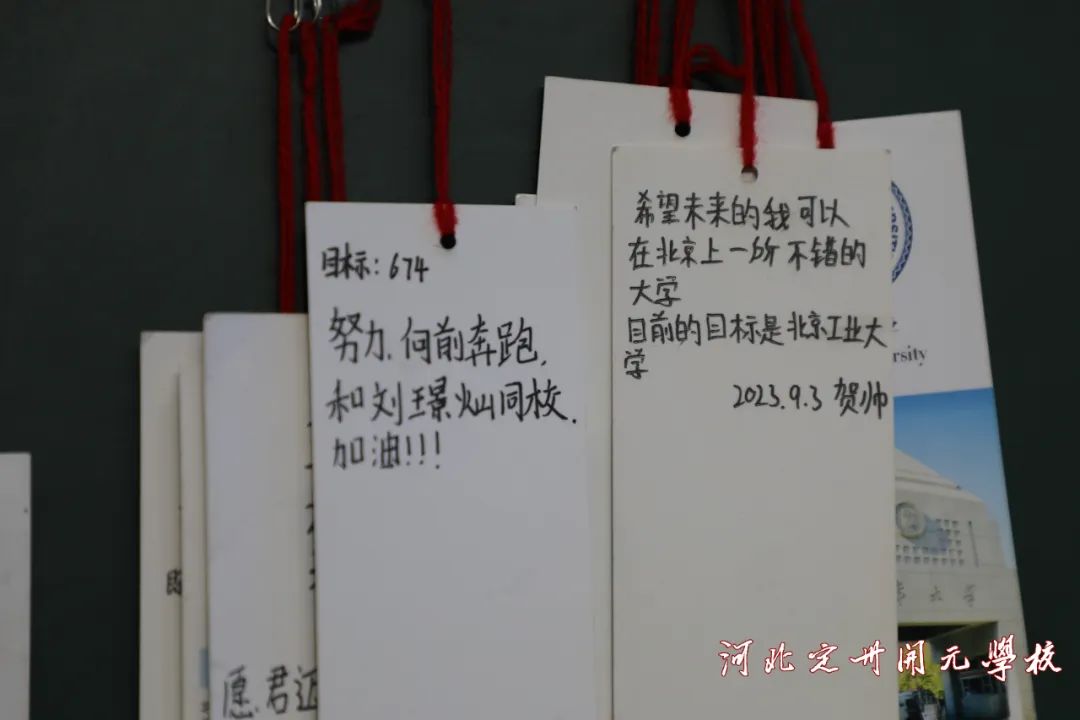 目标：674
努力、向前奔跑，
和刘璟灿同校.
加油!!!
希望未来的我可以
在北京上一所不错的
大学
目前的目标是北京工业大
学
2023.9.3 贺帅
愿君
rsity
大学
河北定州開元學校